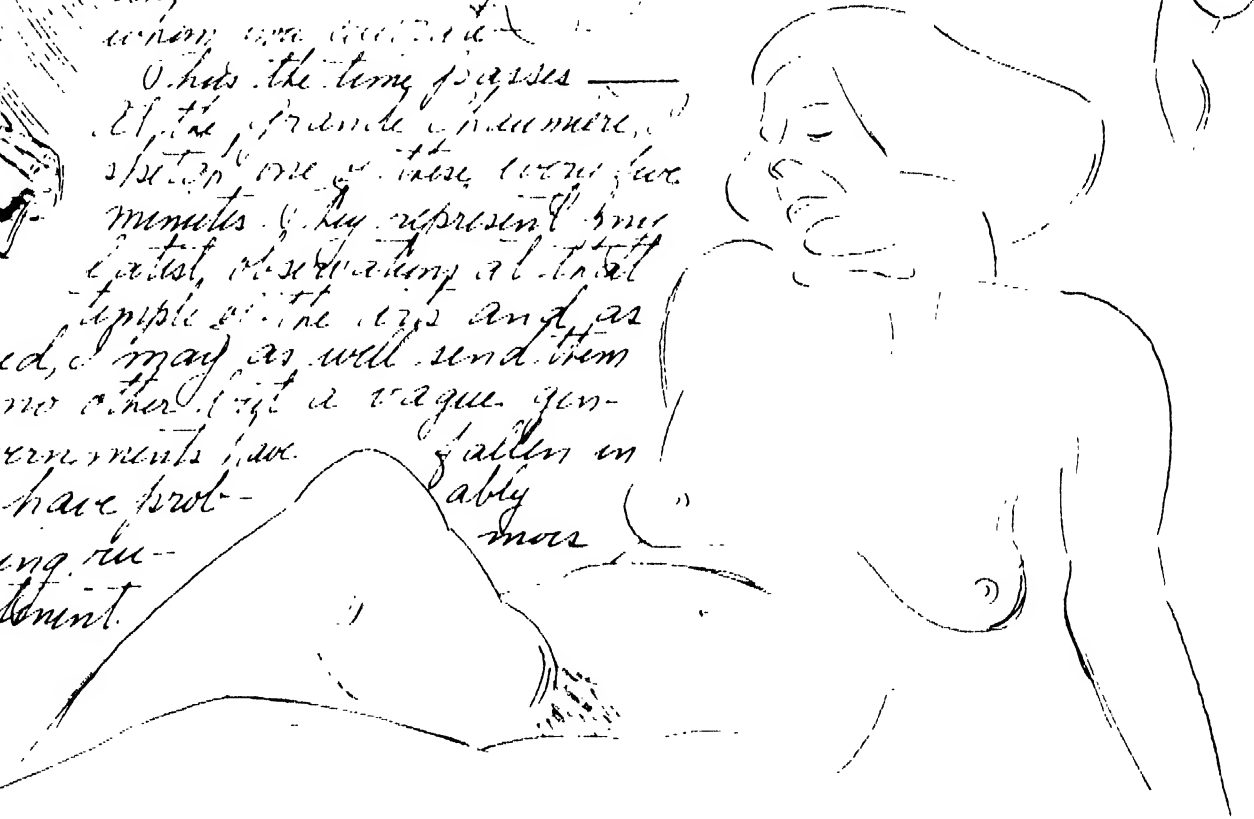 whom
Thus the time passes —
At the Grande Chaumière, I
sketch one of these every five
minutes. They represent my
latest observations at that
temple of the arts and as
ed, I may as well send them
no other but a vague gen-
ernments have fallen in
have prob- ably
ing ru- mors
tement.